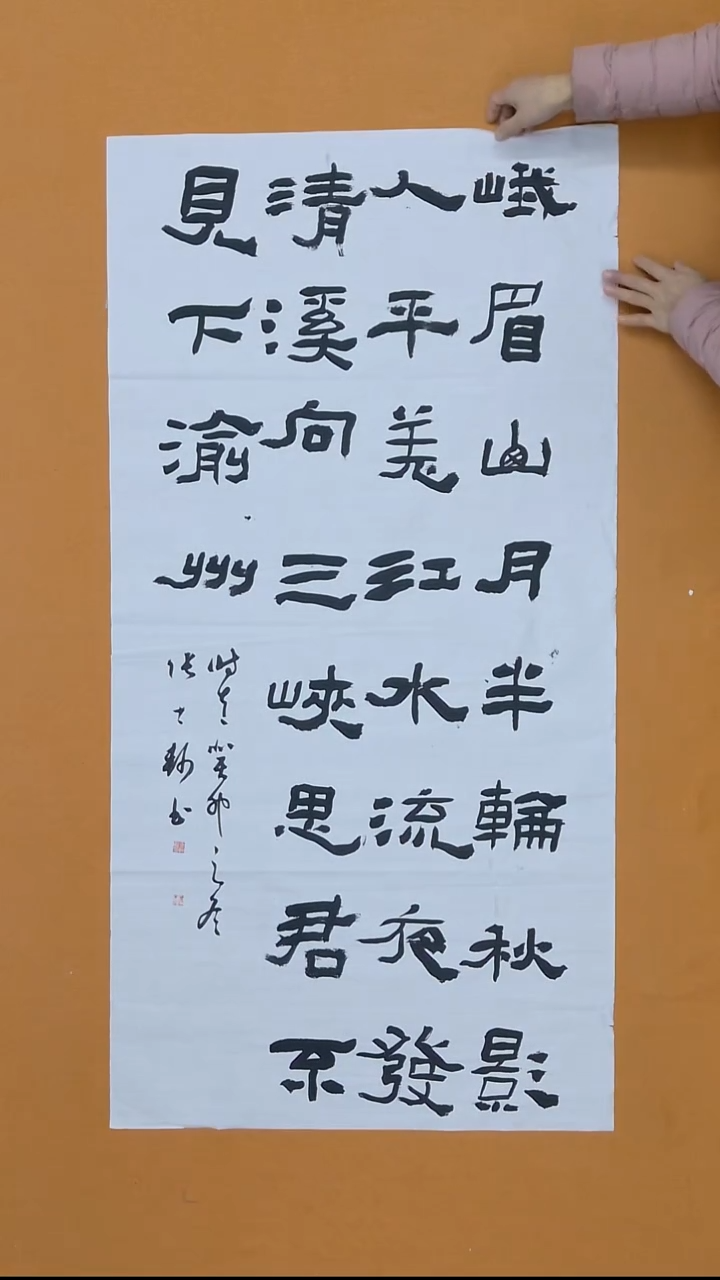 峨眉山月半輪秋影
入平羌江水流夜發
清溪向三峽思君不
見下渝州
時在癸卯之冬
張士書